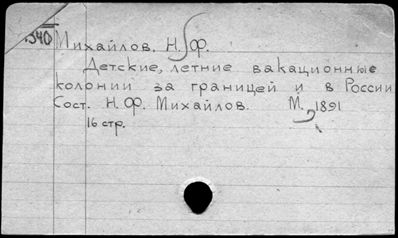 .340
Михайлов, Н. Ф.
Детские, летние вакационные
колонии за границей и в России
Сост. Н. Ф. Михайлов. М., 1891
16 стр.